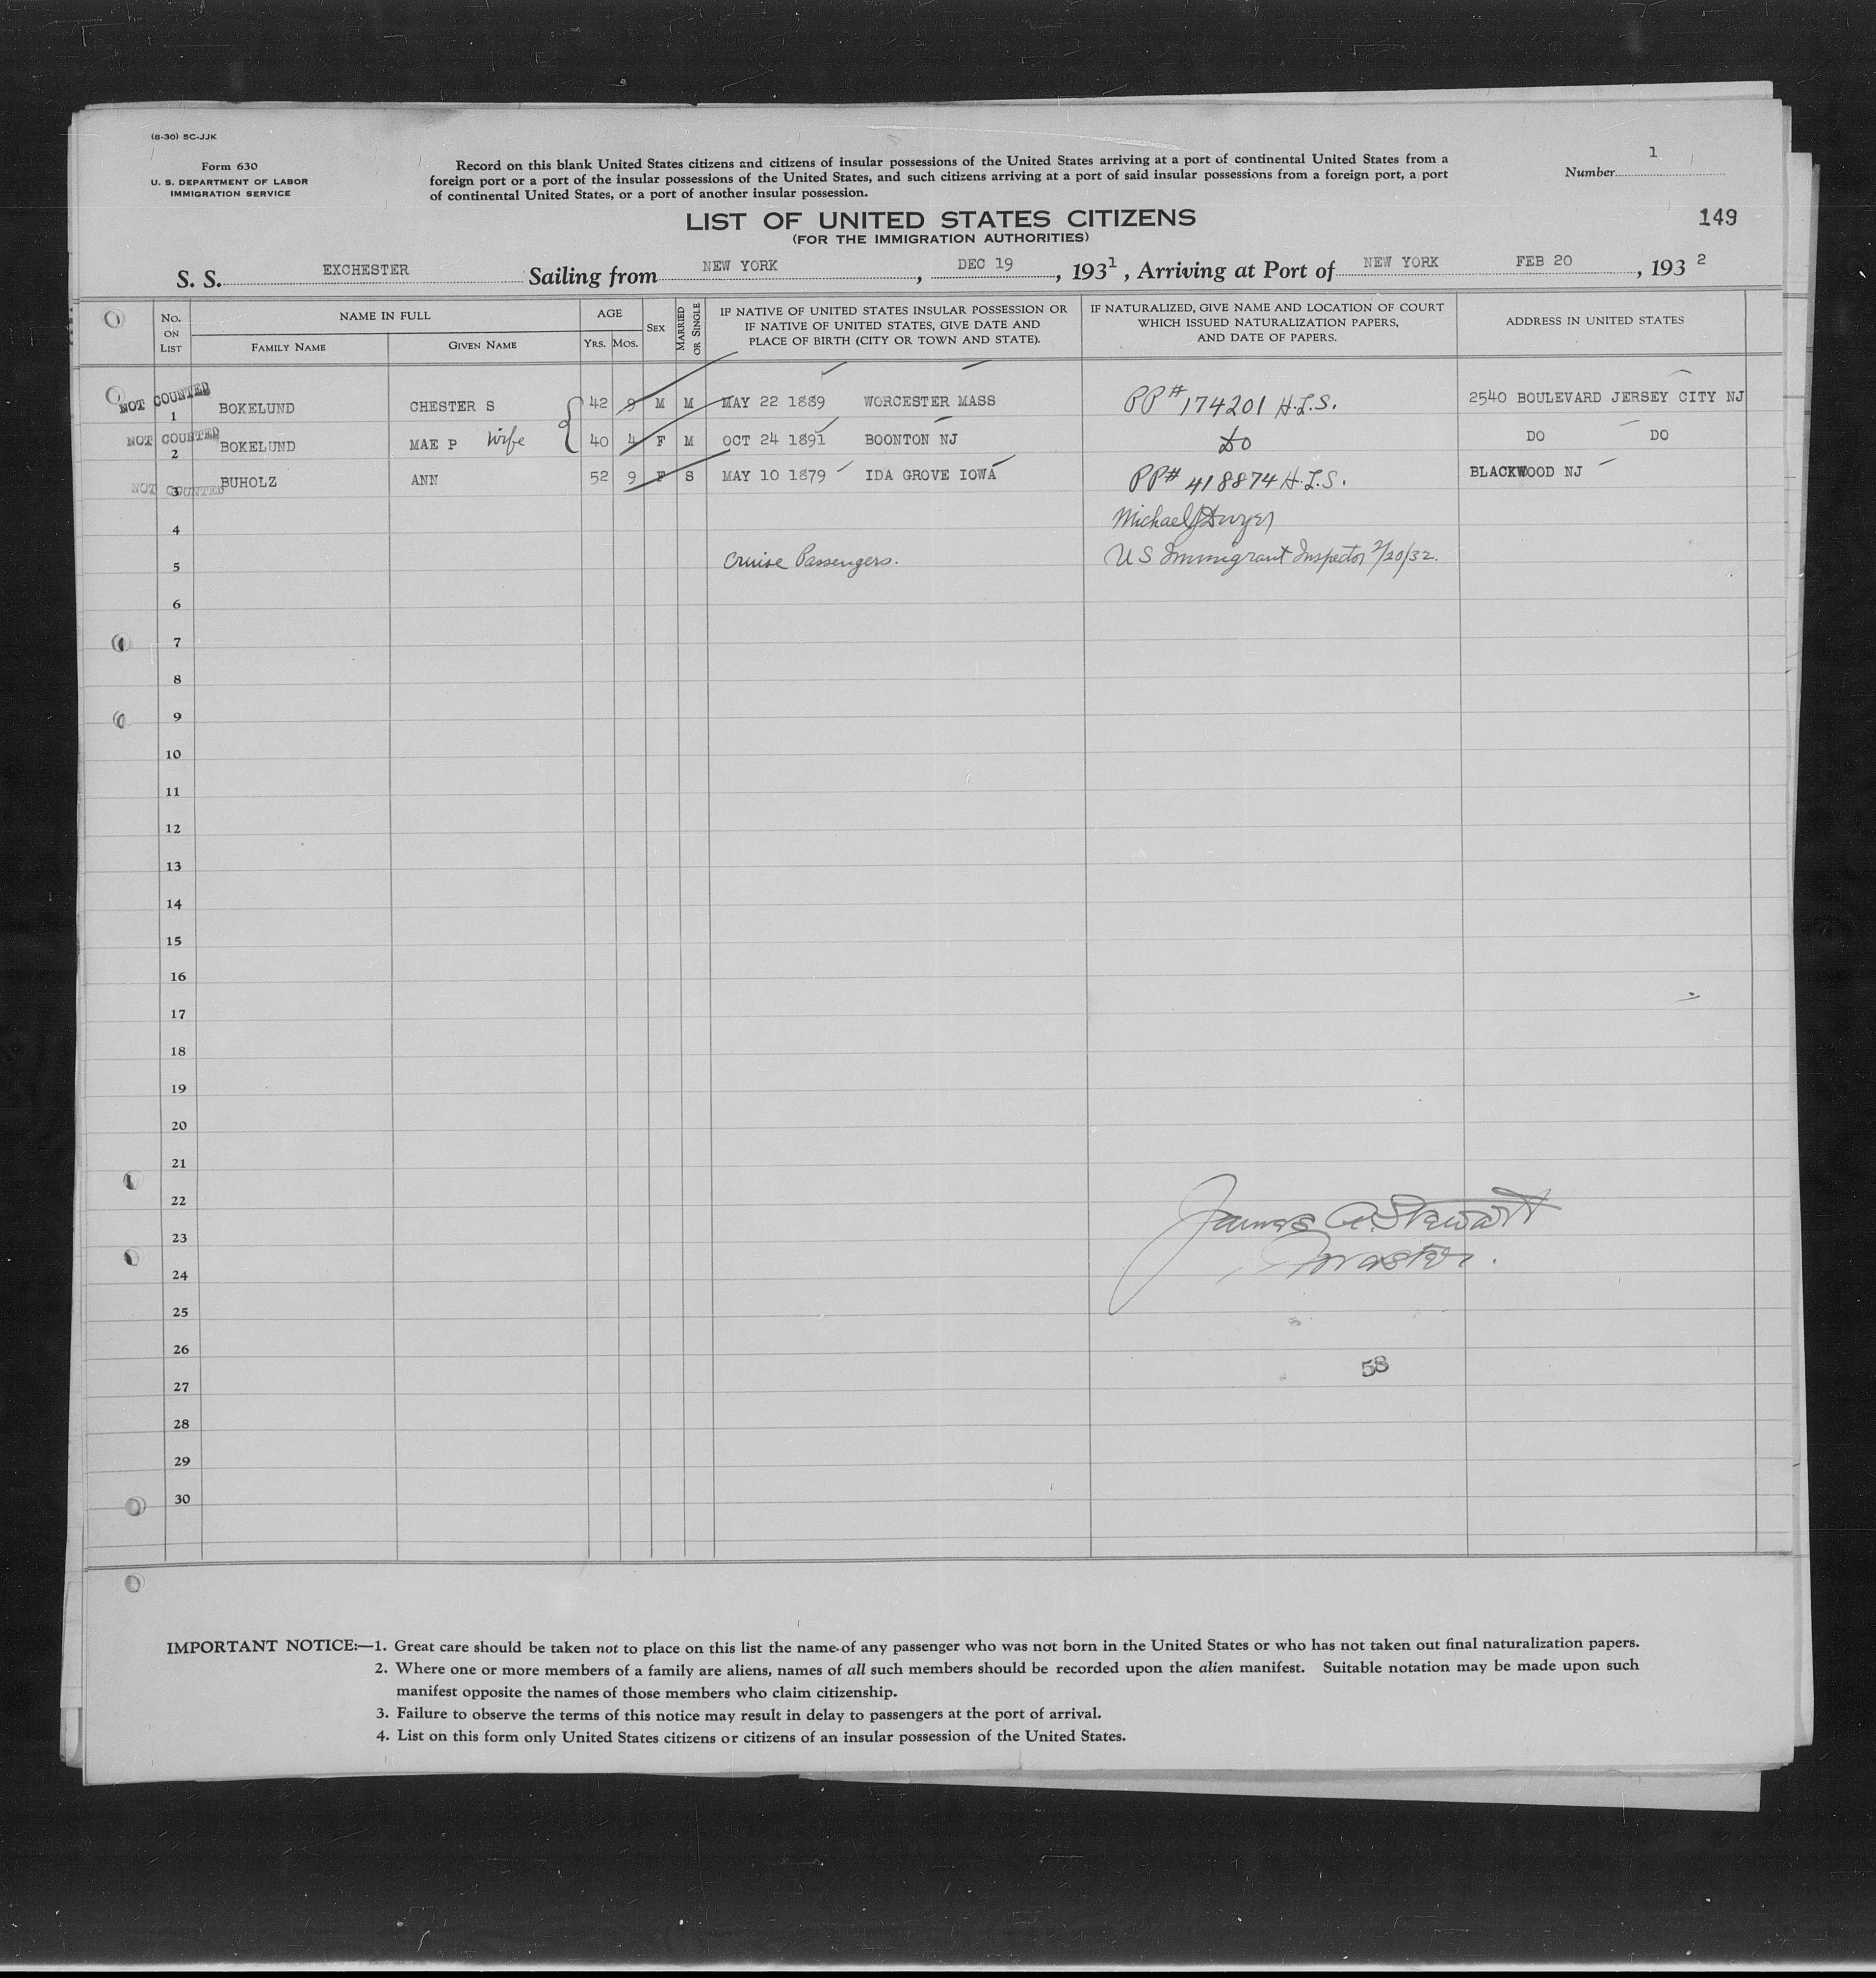 (6-30) 5C-JJK
Form 630
U. S. DEPARTMENT OF LABOR
IMMIGRATION SERVICE
Record on this blank United States citizens and citizens of insular possessions of the United States arriving at a port of continental United States from a
foreign port or a port of the insular possessions of the United States, and such citizens arriving at a port of said insular possessions from a foreign port, a port
of continental United States, or a port of another insular possession.
Number 1
LIST OF UNITED STATES CITIZENS
(FOR THE IMMIGRATION AUTHORITIES)
149
S. S. EXCHESTER Sailing from NEW YORK, DEC 19, 1931, Arriving at Port of NEW YORK FEB 20, 1932
No. ON LIST
NAME IN FULL
FAMILY NAME
GIVEN NAME
AGE
YRS. MOS.
SEX
MARRIED OR SINGLE
IF NATIVE OF UNITED STATES INSULAR POSSESSION OR
IF NATIVE OF UNITED STATES, GIVE DATE AND
PLACE OF BIRTH (CITY OR TOWN AND STATE).
IF NATURALIZED, GIVE NAME AND LOCATION OF COURT
WHICH ISSUED NATURALIZATION PAPERS,
AND DATE OF PAPERS.
ADDRESS IN UNITED STATES
NOT COUNTED 1 BOKELUND CHESTER S 42 9 M M MAY 22 1889 WORCESTER MASS PP# 174201 H.I.S. 2540 BOULEVARD JERSEY CITY NJ
NOT COUNTED 2 BOKELUND MAE P Wife 40 4 F M OCT 24 1891 BOONTON NJ Do DO DO
NOT COUNTED 3 BUHOLZ ANN 52 9 F S MAY 10 1879 IDA GROVE IOWA PP# 418874 H.I.S. BLACKWOOD NJ
4 Michael J Dwyer
5 Cruise Passengers. US Immigrant Inspector 2/20/32.
6
7
8
9
10
11
12
13
14
15
16
17
18
19
20
21
22
23 James A. Stewart
24 Master.
25
26
58
27
28
29
30
IMPORTANT NOTICE:—1. Great care should be taken not to place on this list the name of any passenger who was not born in the United States or who has not taken out final naturalization papers.
2. Where one or more members of a family are aliens, names of all such members should be recorded upon the alien manifest. Suitable notation may be made upon such
manifest opposite the names of those members who claim citizenship.
3. Failure to observe the terms of this notice may result in delay to passengers at the port of arrival.
4. List on this form only United States citizens or citizens of an insular possession of the United States.